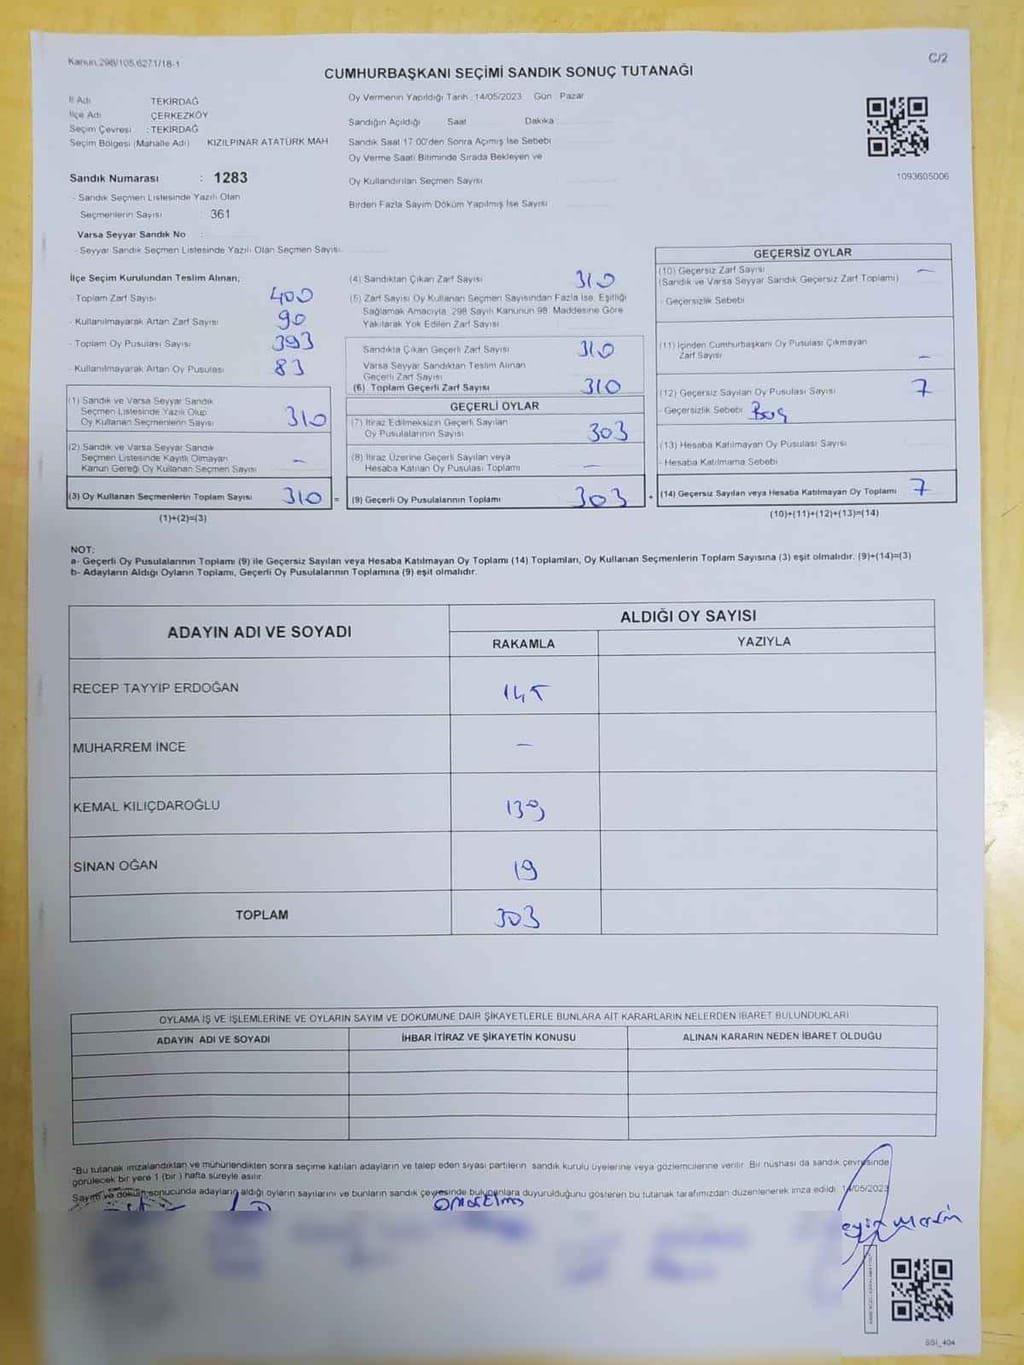 Kanun 298/105,6271/18-1
C/2
CUMHURBAŞKANI SEÇİMİ SANDIK SONUÇ TUTANAĞI
İl Adı TEKİRDAĞ
İlçe Adı ÇERKEZKÖY
Seçim Çevresi : TEKİRDAĞ
Seçim Bölgesi (Mahalle Adı) KIZILPINAR ATATÜRK MAH
Sandık Numarası : 1283
- Sandık Seçmen Listesinde Yazılı Olan
Seçmenlerin Sayısı : 361
Varsa Seyyar Sandık No :
- Seyyar Sandık Seçmen Listesinde Yazılı Olan Seçmen Sayısı:
Oy Vermenin Yapıldığı Tarih : 14/05/2023 Gün : Pazar
Sandığın Açıldığı Saat Dakika
Sandık Saat 17:00'den Sonra Açımış İse Sebebi
Oy Verme Saati Bitiminde Sırada Bekleyen ve
Oy Kullandırılan Seçmen Sayısı
Birden Fazla Sayım Döküm Yapılmış İse Sayısı
1093605006
İlçe Seçim Kurulundan Teslim Alınan;
- Toplam Zarf Sayısı 400
- Kullanılmayarak Artan Zarf Sayısı 90
- Toplam Oy Pusulası Sayısı 393
- Kullanılmayarak Artan Oy Pusulası 83
(1) Sandık ve Varsa Seyyar Sandık
Seçmen Listesinde Yazılı Olup
Oy Kullanan Seçmenlerin Sayısı 310
(2) Sandık ve Varsa Seyyar Sandık
Seçmen Listesinde Kayıtlı Olmayan
Kanun Gereği Oy Kullanan Seçmen Sayısı –
(3) Oy Kullanan Seçmenlerin Toplam Sayısı 310 =
(1)+(2)=(3)
(4) Sandıktan Çıkan Zarf Sayısı 310
(5) Zarf Sayısı Oy Kullanan Seçmen Sayısından Fazla İse, Eşitliği
Sağlamak Amacıyla, 298 Sayılı Kanunun 98. Maddesine Göre
Yakılarak Yok Edilen Zarf Sayısı
Sandıkta Çıkan Geçerli Zarf Sayısı 310
Varsa Seyyar Sandıktan Teslim Alınan
Geçerli Zarf Sayısı
(6) Toplam Geçerli Zarf Sayısı 310
GEÇERLİ OYLAR
(7) İtiraz Edilmeksizin Geçerli Sayılan
Oy Pusulalarının Sayısı 303
(8) İtiraz Üzerine Geçerli Sayılan veya
Hesaba Katılan Oy Pusulası Toplamı –
(9) Geçerli Oy Pusulalarının Toplamı 303 +
GEÇERSİZ OYLAR
(10) Geçersiz Zarf Sayısı –
(Sandık ve Varsa Seyyar Sandık Geçersiz Zarf Toplamı)
- Geçersizlik Sebebi
(11) İçinden Cumhurbaşkanı Oy Pusulası Çıkmayan
Zarf Sayısı –
(12) Geçersiz Sayılan Oy Pusulası Sayısı 7
- Geçersizlik Sebebi Boş
(13) Hesaba Katılmayan Oy Pusulası Sayısı
- Hesaba Katılmama Sebebi
(14) Geçersiz Sayılan veya Hesaba Katılmayan Oy Toplamı 7
(10)+(11)+(12)+(13)=(14)
NOT:
a- Geçerli Oy Pusulalarının Toplamı (9) ile Geçersiz Sayılan veya Hesaba Katılmayan Oy Toplamı (14) Toplamları, Oy Kullanan Seçmenlerin Toplam Sayısına (3) eşit olmalıdır. (9)+(14)=(3)
b- Adayların Aldığı Oyların Toplamı, Geçerli Oy Pusulalarının Toplamına (9) eşit olmalıdır.
ADAYIN ADI VE SOYADI
ALDIĞI OY SAYISI
RAKAMLA YAZIYLA
RECEP TAYYİP ERDOĞAN 145
MUHARREM İNCE –
KEMAL KILIÇDAROĞLU 139
SİNAN OĞAN 19
TOPLAM 303
OYLAMA İŞ VE İŞLEMLERİNE VE OYLARIN SAYIM VE DÖKÜMÜNE DAİR ŞİKAYETLERLE BUNLARA AİT KARARLARIN NELERDEN İBARET BULUNDUKLARI
ADAYIN ADI VE SOYADI İHBAR İTİRAZ VE ŞİKAYETİN KONUSU ALINAN KARARIN NEDEN İBARET OLDUĞU
*Bu tutanak imzalandıktan ve mühürlendikten sonra seçime katılan adayların ve talep eden siyasi partilerin sandık kurulu üyelerine veya gözlemcilerine verilir. Bir nüshası da sandık çevresinde
görülecek bir yere 1 (bir ) hafta süreyle asılır.
Sayım ve döküm sonucunda adayların aldığı oyların sayılarını ve bunların sandık çevresinde bulunanlara duyurulduğunu gösteren bu tutanak tarafımızdan düzenlenerek imza edildi. 14/05/2023
SSİ_404